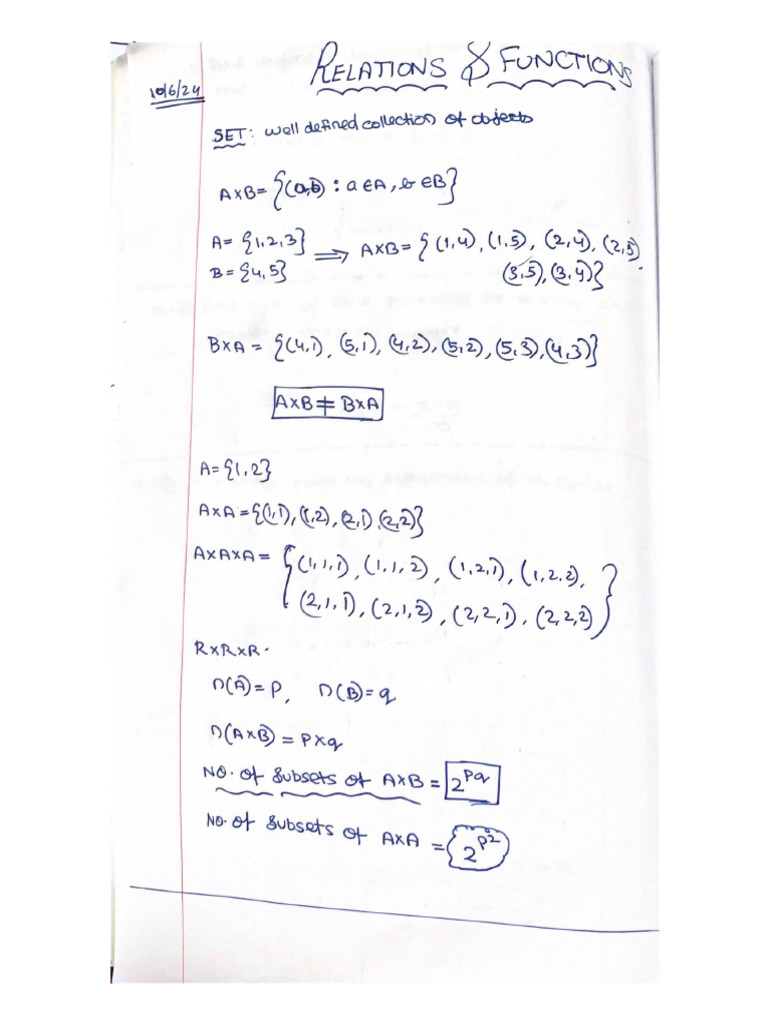 RELATIONS & FUNCTIONS
10/6/24
SET: Well defined collection of objects
A×B = {(a,b) : a∈A, b∈B}
A = {1,2,3}
B = {4,5}
⟹ A×B = {(1,4), (1,5), (2,4), (2,5),
(3,5), (3,4)}
B×A = {(4,1), (5,1), (4,2), (5,2), (5,3), (4,3)}
A×B ≠ B×A
A = {1,2}
A×A = {(1,1), (1,2), (2,1), (2,2)}
A×A×A = {(1,1,1), (1,1,2), (1,2,1), (1,2,2),
(2,1,1), (2,1,2), (2,2,1), (2,2,2)}
R×R×R.
n(A) = P, n(B) = q
n(A×B) = P×q
NO. of Subsets of A×B = 2^pq
NO. of Subsets of A×A = 2^p²